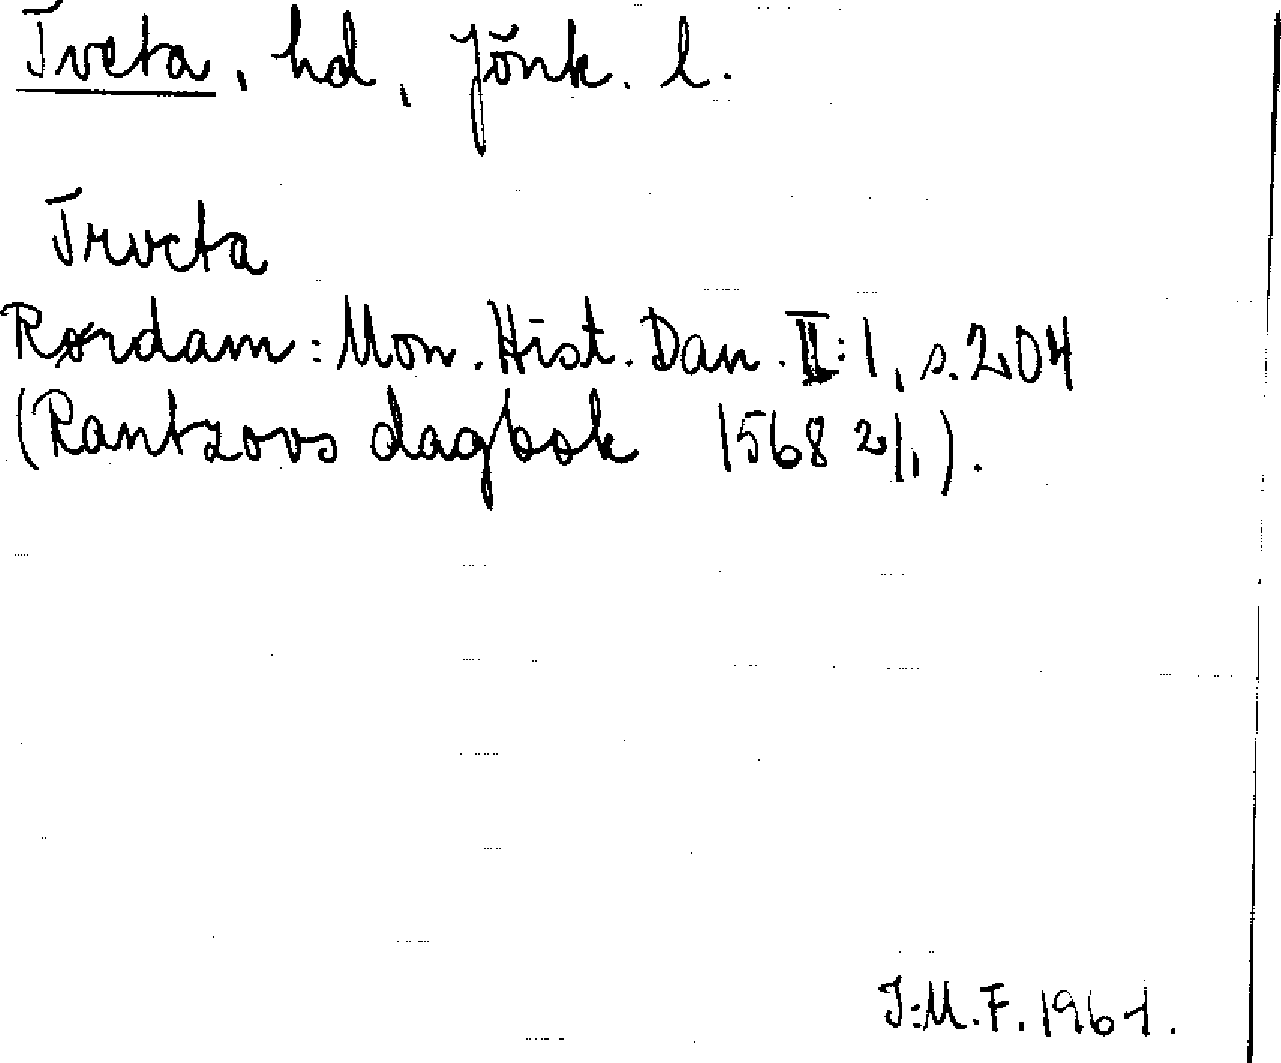 Tveta, hd, Jönk. l.
Trveta
Rørdam: Mon. Hist. Dan. II:1, s. 204
(Rantzovs dagbok 1568 2/1).
I:M.F. 1961.